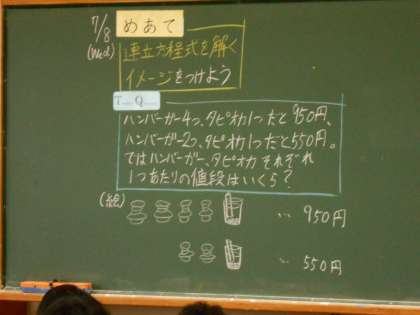 7/8
(Wed)
めあて
連立方程式を解く
イメージをつけよう
T...Q...
ハンバーガー4つ、タピオカ1つだと950円、
ハンバーガー2つ、タピオカ1つだと550円。
ではハンバーガー、タピオカ それぞれ
1つあたりの値段はいくら？
(絵)
… 950円
… 550円